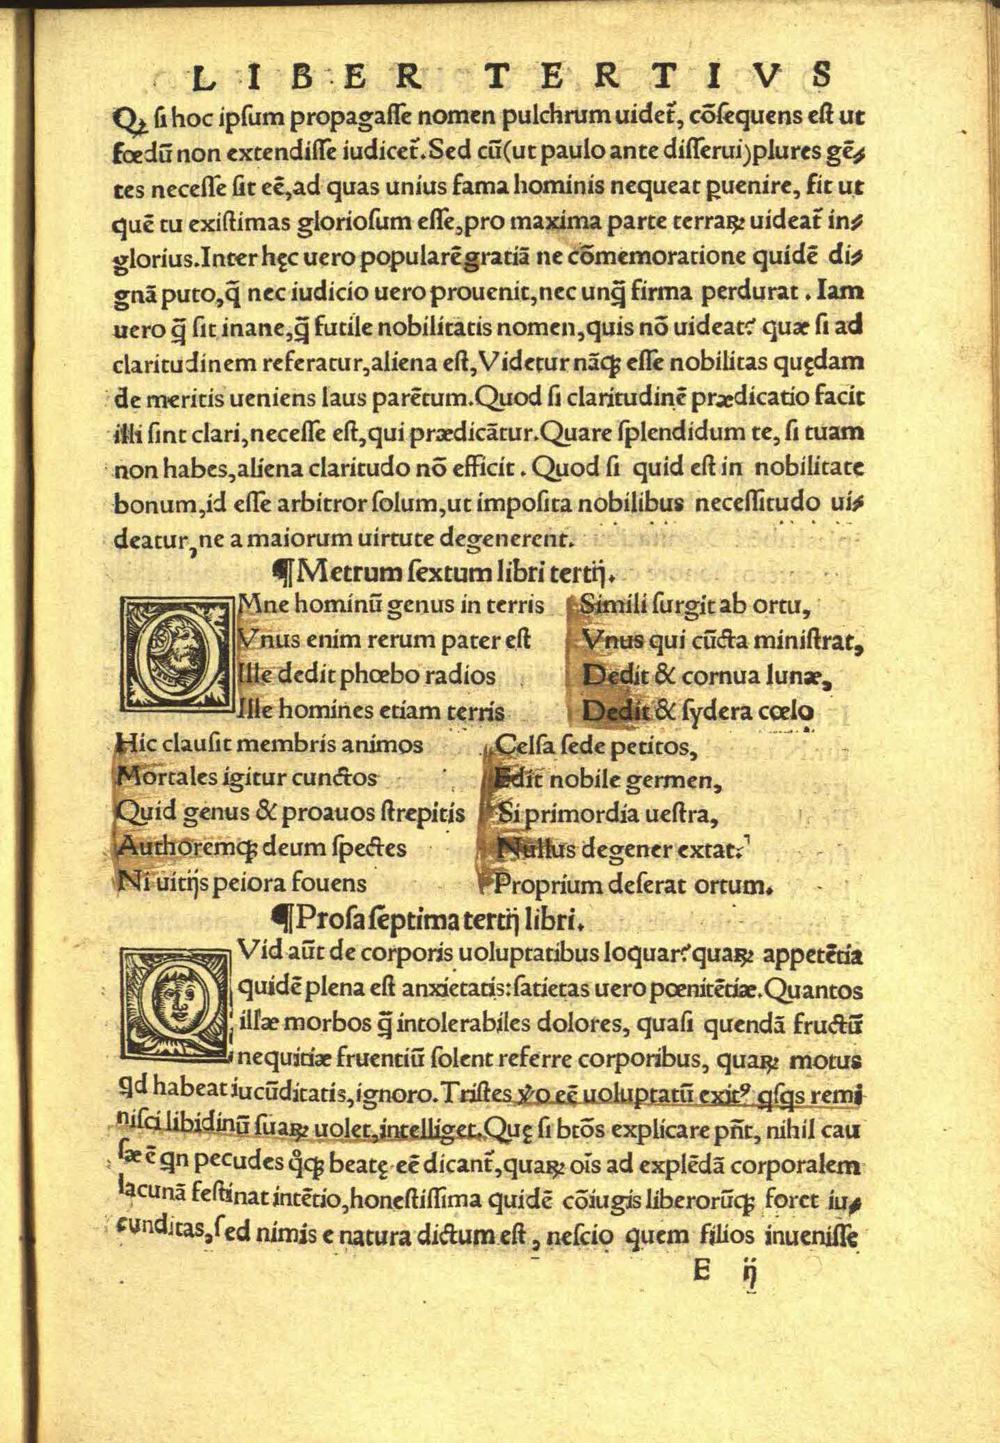 LIBER TERTIVS
Qꝫ si hoc ipsum propagasse nomen pulchrum uidet̃, cõsequens est ut
fœdũ non extendisse iudicet̃. Sed cũ(ut paulo ante disserui)plures gẽ⸗
tes necesse sit eẽ,ad quas unius fama hominis nequeat ꝑuenire, fit ut
quẽ tu existimas gloriosum esse,pro maxima parte terraꝝ uideat̃ in⸗
glorius.Inter hęc uero popularẽ gratiã ne cõmemoratione quidẽ di⸗
gnã puto,q̃ nec iudicio uero prouenit,nec unq̃ firma perdurat. Iam
uero q̃ sit inane,q̃ futile nobilitatis nomen,quis nõ uideat? quæ si ad
claritudinem referatur,aliena est,Videtur nãqꝫ esse nobilitas quędam
de meritis ueniens laus parẽtum.Quod si claritudinẽ prædicatio facit
illi sint clari,necesse est,qui prædicãtur.Quare splendidum te, si tuam
non habes,aliena claritudo nõ efficit. Quod si quid est in nobilitate
bonum,id esse arbitror solum,ut imposita nobilibus necessitudo ui⸗
deatur,ne a maiorum uirtute degenerent.
¶Metrum sextum libri tertij.
OMne hominũ genus in terris Simili surgit ab ortu,
Vnus enim rerum pater est Vnus qui cũcta ministrat,
Ille dedit phœbo radios Dedit & cornua lunæ,
Ille homines etiam terris Dedit & sydera cœlo
Hic clausit membris animos Celsa sede petitos,
Mortales igitur cunctos Edit nobile germen,
Quid genus & proauos strepitis Si primordia uestra,
Authoremqꝫ deum spectes Nullus degener extat?
Ni uitijs peiora fouens Proprium deserat ortum.
¶Prosa septima tertij libri.
QVid aũt de corporis uoluptatibus loquar?quaꝝ appetẽtia
quidẽ plena est anxietatis:satietas uero pœnitẽtiæ.Quantos
illæ morbos q̃ intolerabiles dolores, quasi quendã fructũ
nequitiæ fruentiũ solent referre corporibus, quaꝝ motus
qd habeat iucũditatis,ignoro.Tristes ṽo eẽ uoluptatũ exitꝰ qsqs remi
nisci libidinũ suaꝝ uolet,intelliget.Quę si btõs explicare pñt, nihil cau
sæ ẽ qn pecudes qͦqꝫ beatę eẽ dicant̃,quaꝝ oĩs ad explẽdã corporalem
lacunã festinat intẽtio,honestissima quidẽ cõiugis liberorũqꝫ foret iu⸗
cunditas,sed nimis e natura dictum est, nescio quem filios inuenisse
E ij